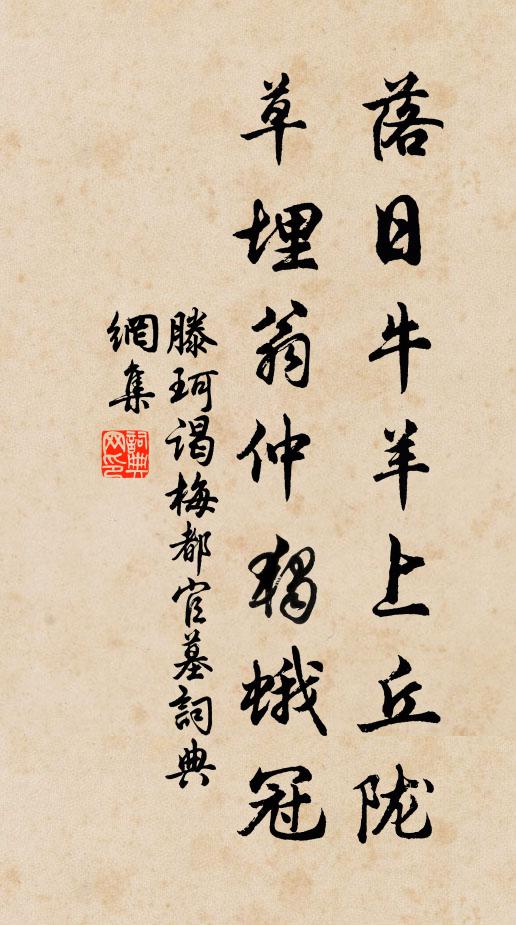 落日牛羊上丘陇
草埋翁仲獨蛾冠
滕珂謁梅都官墓詞典
網集
詞典网印